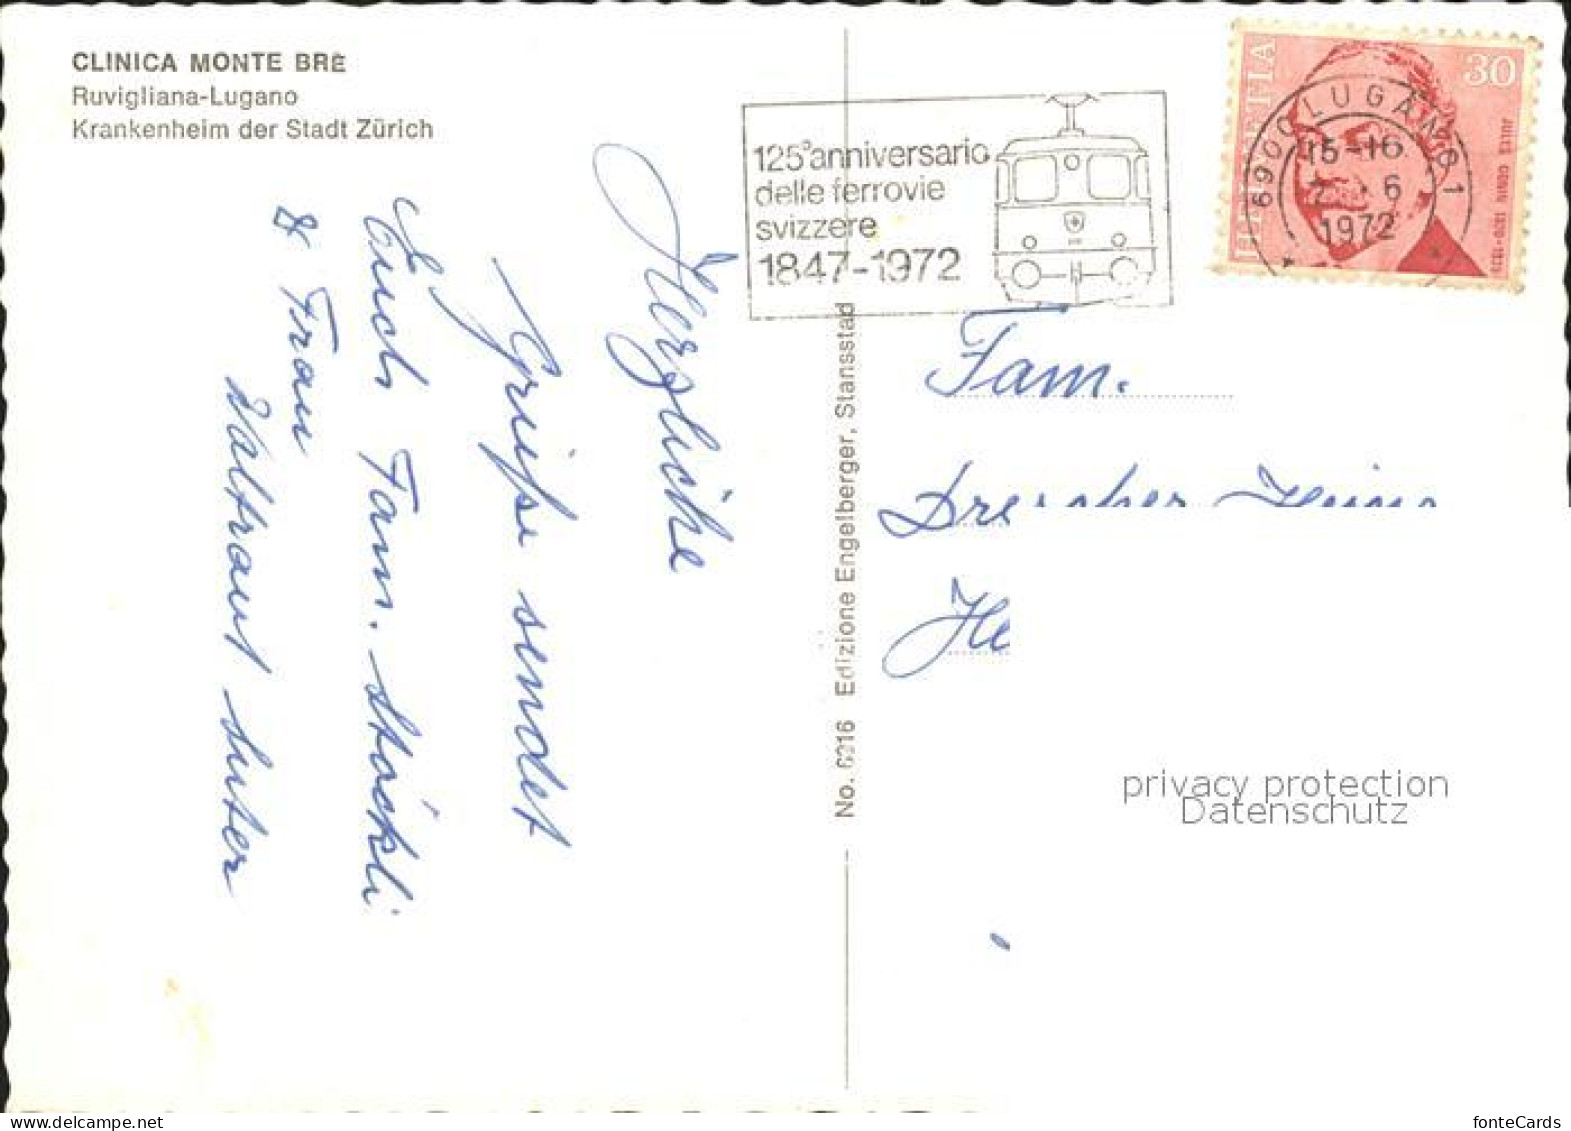 CLINICA MONTE BRÈ
Ruvigliana-Lugano
Krankenheim der Stadt Zürich
Herzliche
Grüße sendet
Euch Fam. Stöckli
& Frau
Waltraut Suter
No. 6216 Edizione Engelberger, Stansstad
125° anniversario
delle ferrovie
svizzere
1847-1972
HELVETIA
30
6900 LUGANO 1
15-16
6
1972
Fam.
Drescher Heinz
He
privacy protection
Datenschutz
fonteCards